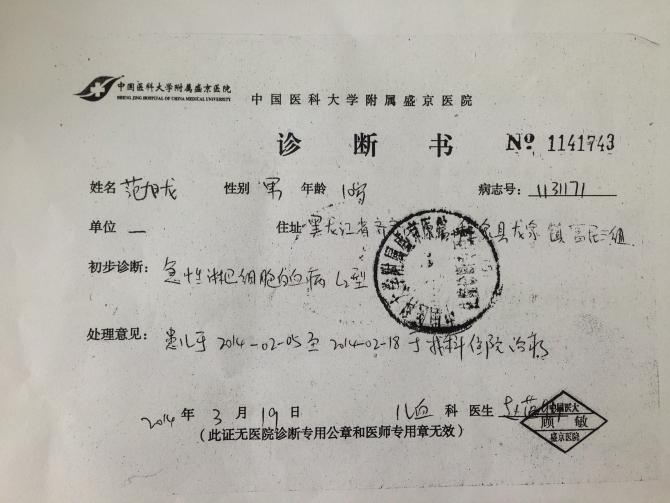 中国医科大学附属盛京医院
SHENG JING HOSPITAL OF CHINA MEDICAL UNIVERSITY
中国医科大学附属盛京医院
诊断书 № 1141743
姓名 范 龙 性别 男 年龄 病志号: 1131171
单位 — 住址 黑龙江省齐 县龙泉镇富 组
初步诊断: 急性淋巴细胞白血病L2型
处理意见: 患儿于2014-02-05至2014-02-18于我科住院治疗
2014年3月19日 儿血科 医生
中国医大
顾敏
盛京医院
(此证无医院诊断专用公章和医师专用章无效)